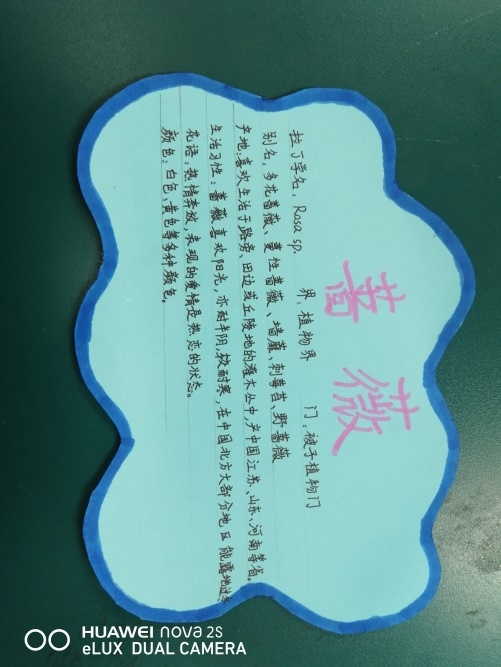 蔷薇
拉丁学名：Rosa sp. 界：植物界 门：被子植物门
别名：多花蔷薇、蔓性蔷薇、墙蘼、刺莓苔、野蔷薇
产地：喜欢生活于路旁、田边或丘陵地的灌木丛中，产中国江苏、山东、河南等省。
生活习性：蔷薇喜欢阳光，亦耐半阴，较耐寒，在中国北方大部分地区能露地过冬
花语：热情奔放，表现的爱情是热恋的状态。
颜色：白色、黄色等多种颜色。
HUAWEI nova 2s
eLUX DUAL CAMERA